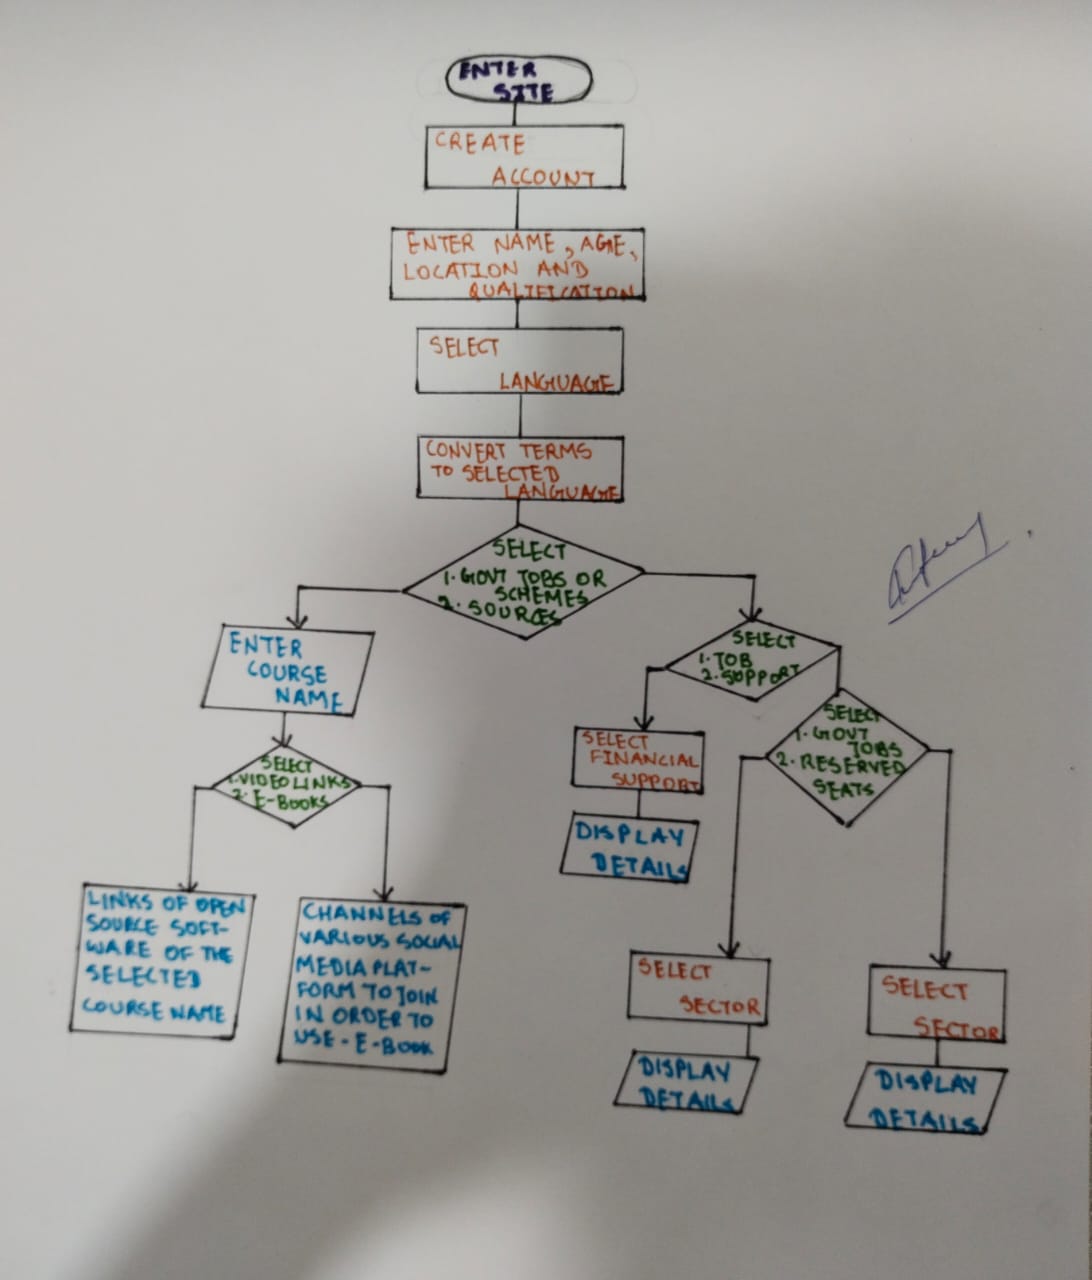 ENTER
SITE
CREATE
ACCOUNT
ENTER NAME, AGE,
LOCATION AND
QUALIFICATION
SELECT
LANGUAGE
CONVERT TERMS
TO SELECTED
LANGUAGE
SELECT
1. GOVT JOBS OR
SCHEMES
2. SOURCES
ENTER
COURSE
NAME
SELECT
1. VIDEO LINKS
2. E-BOOKS
LINKS OF OPEN
SOURCE SOFT-
WARE OF THE
SELECTED
COURSE NAME
CHANNELS OF
VARIOUS SOCIAL
MEDIA PLAT-
FORM TO JOIN
IN ORDER TO
USE - E-BOOK
SELECT
1. JOB
2. SUPPORT
SELECT
FINANCIAL
SUPPORT
DISPLAY
DETAILS
SELECT
1. GOVT
JOBS
2. RESERVED
SEATS
SELECT
SECTOR
DISPLAY
DETAILS
SELECT
SECTOR
DISPLAY
DETAILS